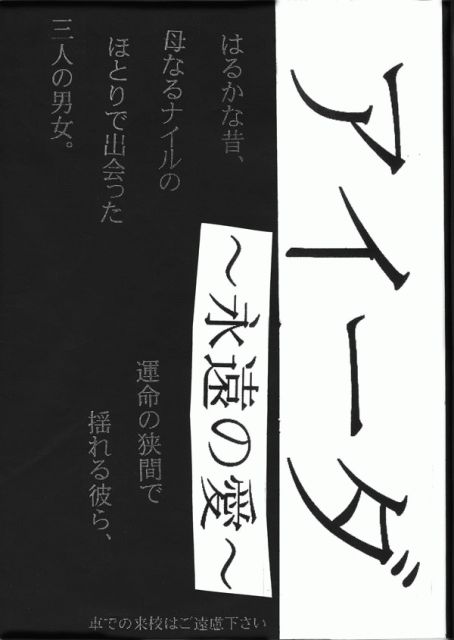 アイーダ
～永遠の愛～
はるかな昔、
母なるナイルの
ほとりで出会った
三人の男女。
運命の狭間で
揺れる彼ら、
車での来校はご遠慮下さい